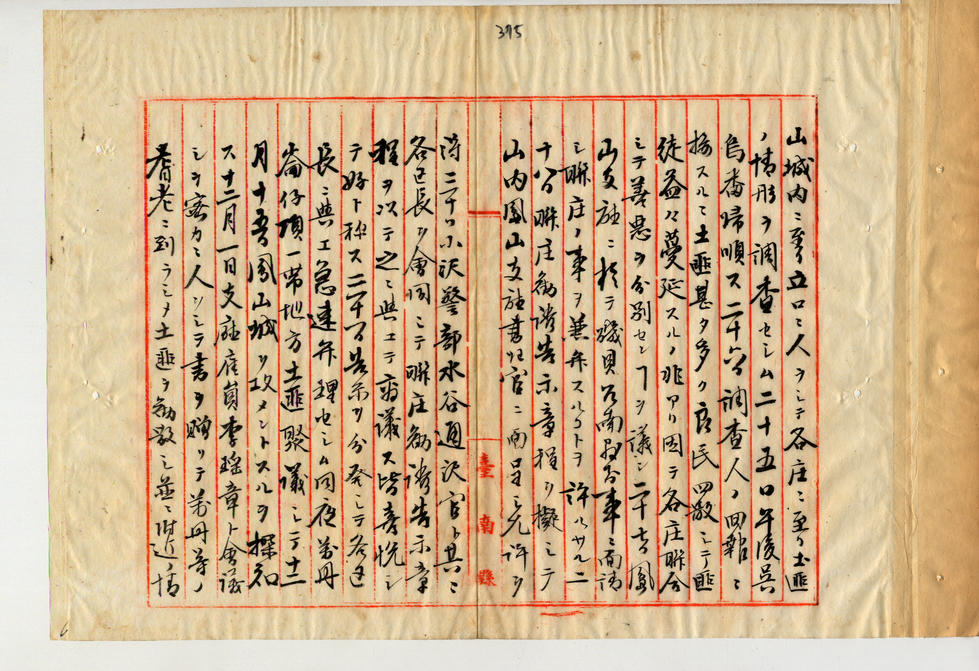 395
山城内ニ寄リ立口ニ人ヲシテ各庄ニ至リ土匪
ノ情形ヲ調査セシム二十五日午後呉
烏番帰順ス二十六日調査人ノ回報ニ
接スルニ土匪甚タ多ク店民四散シテ匪
徒益々蔓延スルノ兆アリ因テ各庄聯合
シテ善悪ヲ分別センヿヲ議シ二十七日鳳
山支庁ニ於テ磯貝台南知事ニ面請
シ聯庄ノ事ヲ兼弁スルヿヲ許サル二
十八日聯庄勧諭告示章程ヲ擬シテ
山内鳳山支庁書記官ニ面呈シ允許ヲ
得二十日小沢警部水谷通訳官ト共ニ
各区長ヲ會同シテ聯庄勧諭告示章
程ヲ以テ之ニ與エテ商議ス皆喜悦シ
テ好ト称ス二十一日告示ヲ分発シテ各区
長ニ與エ急速弁理セシム同夜萬丹
崙仔頂一帯地方土匪聚議シテ十二
月十五日鳳山城ヲ攻メントスルヲ探知
ス十二月一日支庁雇員李瑶章ト會議
シヲ密カニ人ヲシテ書ヲ贈リテ萬丹等ノ
耆老ニ到ラシメ土匪ヲ勧散シ並ニ附近ノ情
臺南縣